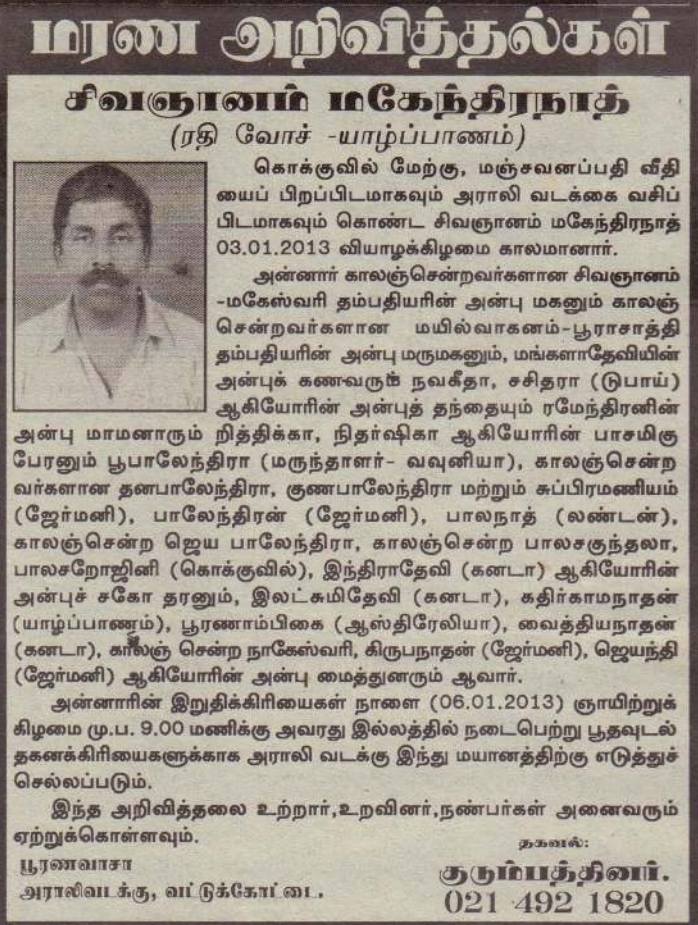 மரண அறிவித்தல்கள்
சிவஞானம் மகேந்திரநாத்
(ரதி வோச் -யாழ்ப்பாணம்)
கொக்குவில் மேற்கு, மஞ்சவனப்பதி வீதி
யைப் பிறப்பிடமாகவும் அராலி வடக்கை வசிப்
பிடமாகவும் கொண்ட சிவஞானம் மகேந்திரநாத்
03.01.2013 வியாழக்கிழமை காலமானார்.
அன்னார் காலஞ்சென்றவர்களான சிவஞானம்
-மகேஸ்வரி தம்பதியரின் அன்பு மகனும் காலஞ்
சென்றவர்களான மயில்வாகனம்-பூராசாத்தி
தம்பதியரின் அன்பு மருமகனும், மங்களாதேவியின்
அன்புக் கணவரும் நவகீதா, சசிதரா (டுபாய்)
ஆகியோரின் அன்புத் தந்தையும் ரமேந்திரனின்
அன்பு மாமனாரும் றித்திக்கா, நிதர்ஷிகா ஆகியோரின் பாசமிகு
பேரனும் பூபாலேந்திரா (மருந்தாளர்- வவுனியா), காலஞ்சென்ற
வர்களான தனபாலேந்திரா, குணபாலேந்திரா மற்றும் சுப்பிரமணியம்
(ஜேர்மனி), பாலேந்திரன் (ஜேர்மனி), பாலநாத் (லண்டன்),
காலஞ்சென்ற ஜெய பாலேந்திரா, காலஞ்சென்ற பாலசகுந்தலா,
பாலசறோஜினி (கொக்குவில்), இந்திராதேவி (கனடா) ஆகியோரின்
அன்புச் சகோ தரனும், இலட்சுமிதேவி (கனடா), கதிர்காமநாதன்
(யாழ்ப்பாணம்), பூரணாம்பிகை (ஆஸ்திரேலியா), வைத்தியநாதன்
(கனடா), காலஞ் சென்ற நாகேஸ்வரி, கிருபநாதன் (ஜேர்மனி), ஜெயந்தி
(ஜேர்மனி) ஆகியோரின் அன்பு மைத்துனரும் ஆவார்.
அன்னாரின் இறுதிக்கிரியைகள் நாளை (06.01.2013) ஞாயிற்றுக்
கிழமை மு.ப. 9.00 மணிக்கு அவரது இல்லத்தில் நடைபெற்று பூதவுடல்
தகனக்கிரியைகளுக்காக அராலி வடக்கு இந்து மயானத்திற்கு எடுத்துச்
செல்லப்படும்.
இந்த அறிவித்தலை உற்றார்,உறவினர்,நண்பர்கள் அனைவரும்
ஏற்றுக்கொள்ளவும்.
தகவல்:
பூரணவாசா
குடும்பத்தினர்.
அராலிவடக்கு, வட்டுக்கோட்டை.
021 492 1820